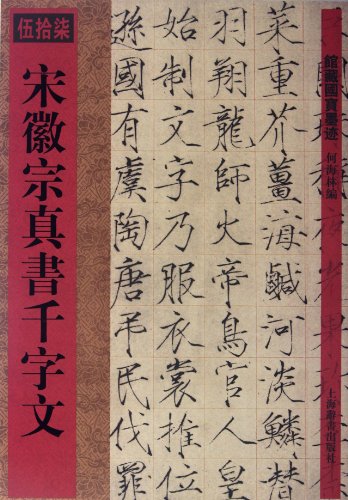 伍拾柒
宋徽宗真書千字文
館藏國寶墨迹
何海林編
上海辭書出版社
菜重芥薑海鹹河淡鱗潛
羽翔龍師火帝鳥官人皇
始制文字乃服衣裳推位
遜國有虞陶唐弔民伐罪